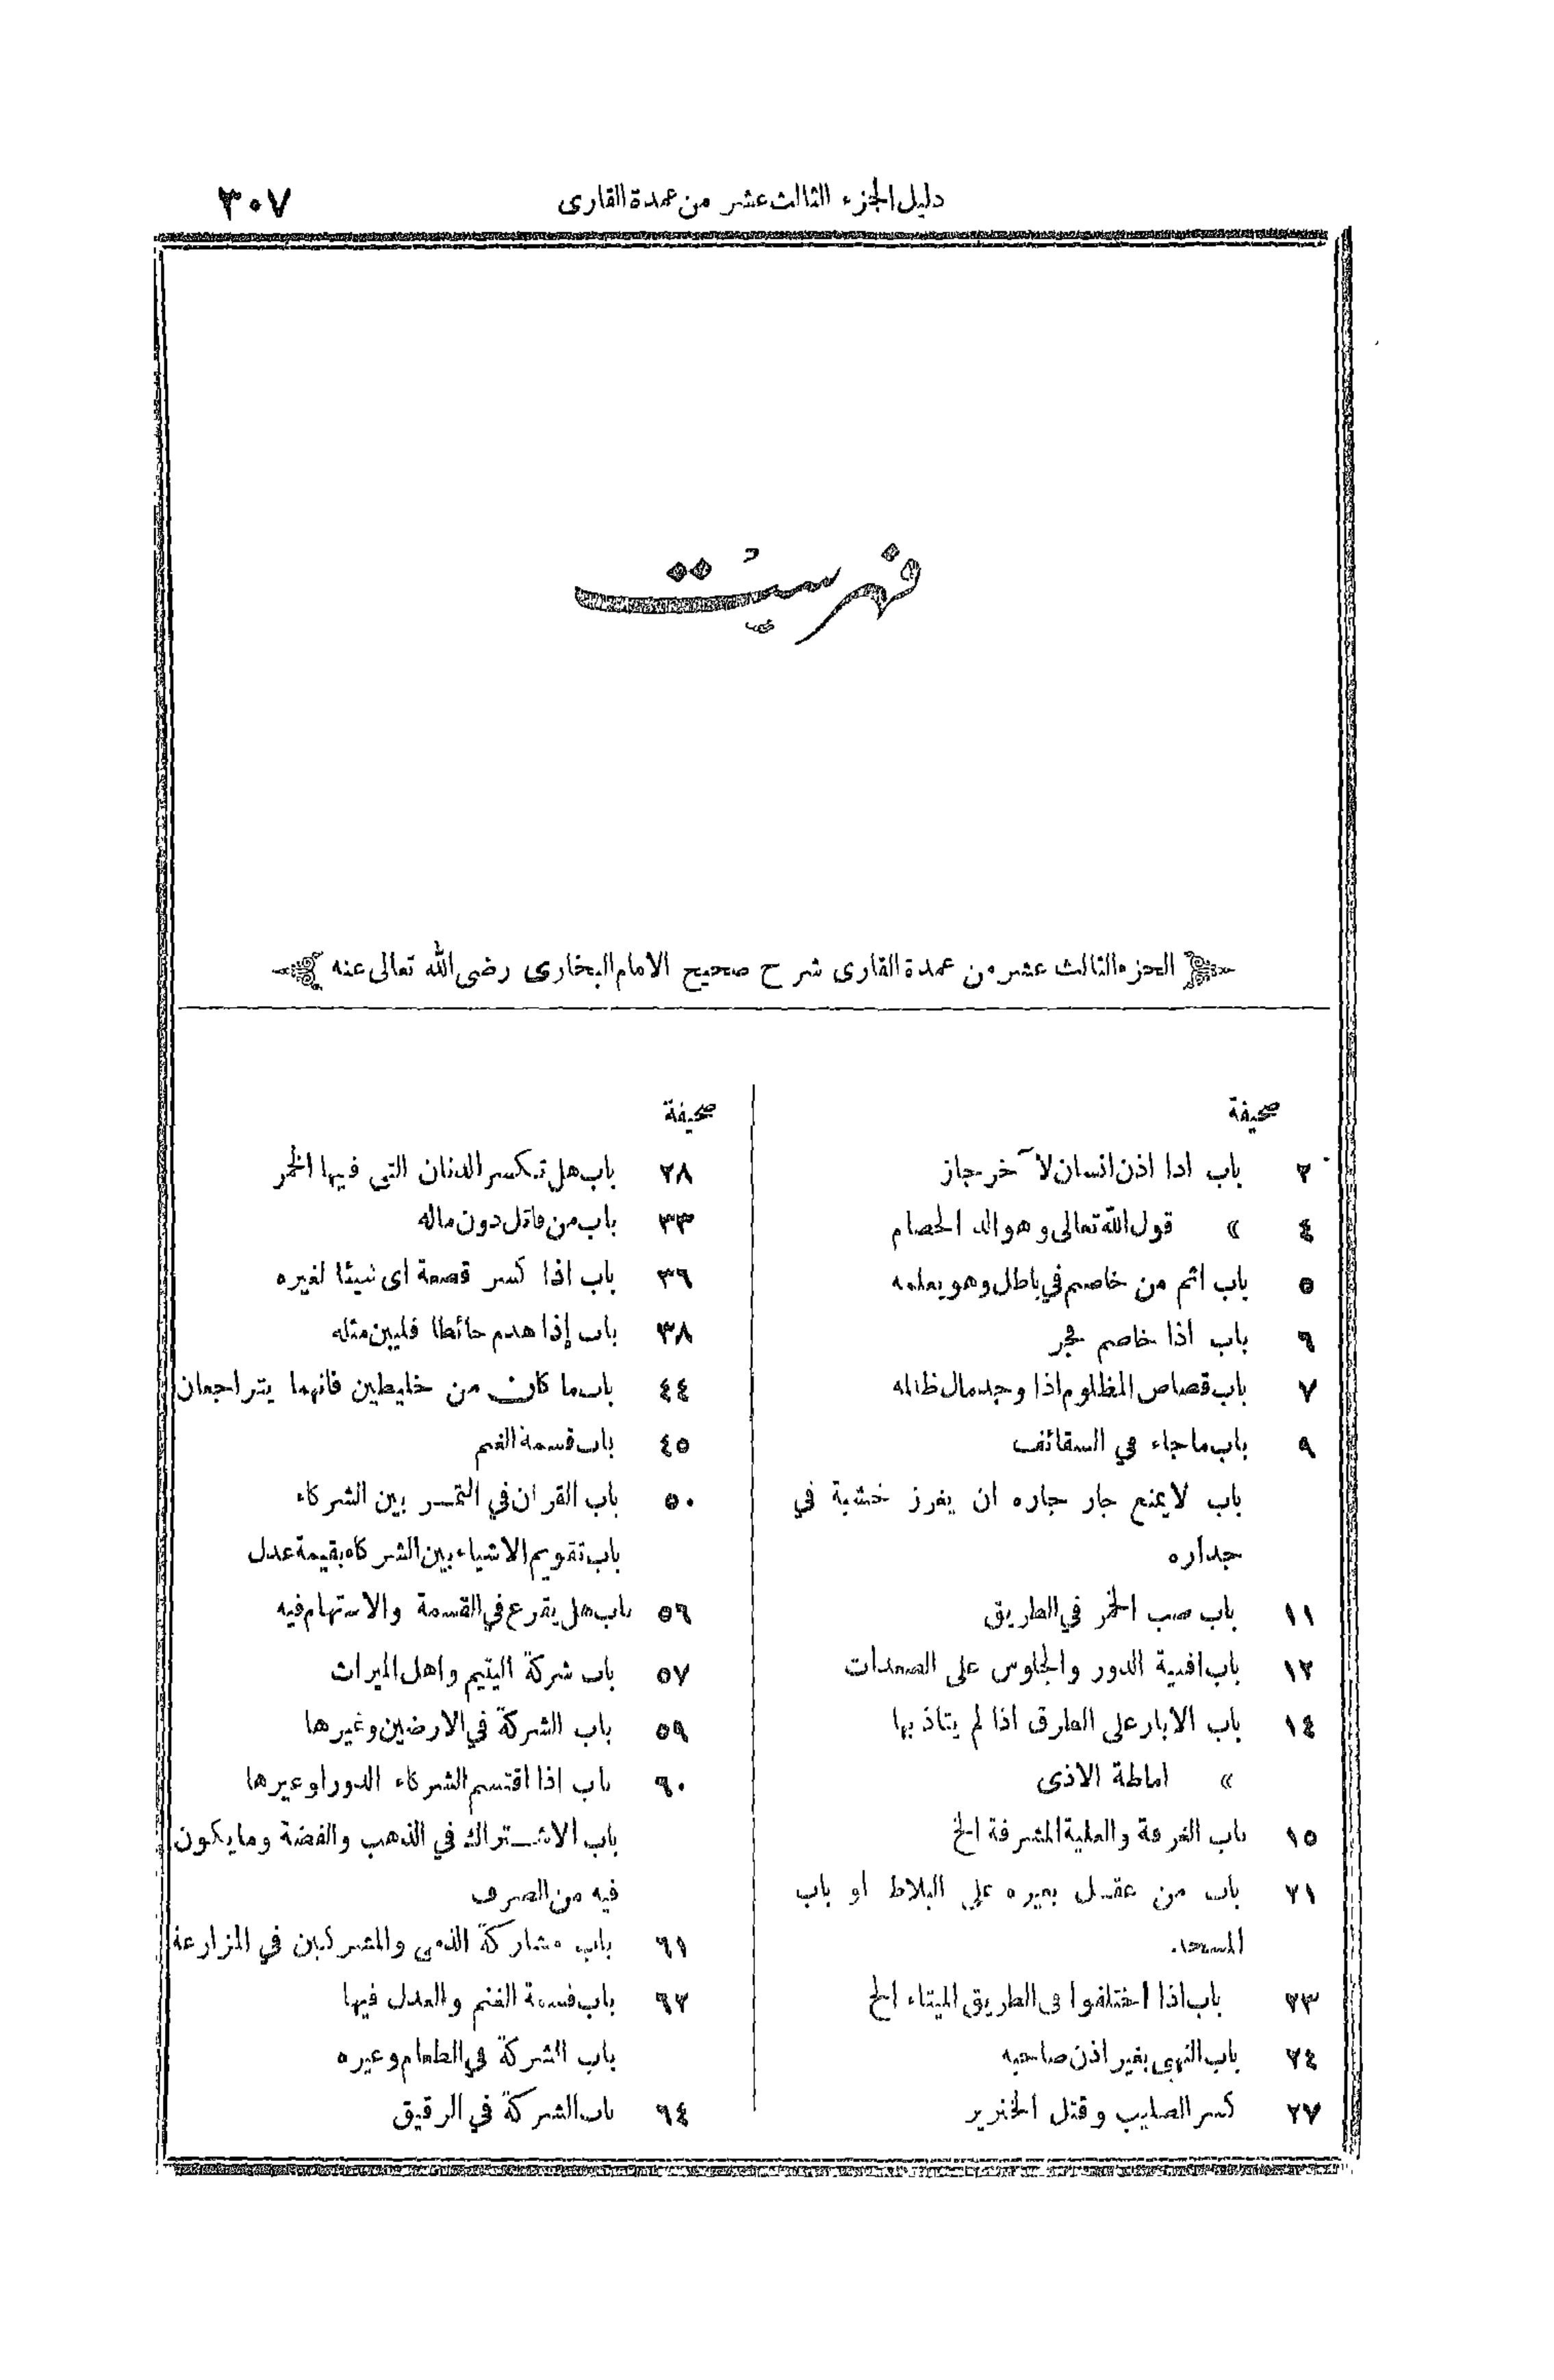 دليل الجزء الثالث عشر من عمدة القارى ٣٠٧
فهرست
الجزء الثالث عشر من عمدة القارى شرح صحيح الامام البخارى رضى الله تعالى عنه
صحيفة
٢ باب اذا اذن انسان لآخر جاز
٤ » قول الله تعالى وهو الد الخصام
٥ باب اثم من خاصم في باطل وهو يعلمه
٦ باب اذا خاصم فجر
٧ باب قصاص المظلوم اذا وجد مال ظالمه
٩ باب ما جاء في السقائف
باب لا يمنع جار جاره ان يغرز خشبة في
جداره
١١ باب صب الخمر في الطريق
١٢ باب افنية الدور والجلوس على الصعدات
١٤ باب الابار على الطرق اذا لم يتاذ بها
» اماطة الاذى
١٥ باب الغرفة والعلية المشرفة الخ
٢١ باب من عقل بعيره على البلاط او باب
المسجد
٢٣ باب اذا اختلفوا في الطريق الميتاء الخ
٢٤ باب النهبى بغير اذن صاحبه
٢٧ كسر الصليب وقتل الخنزير
صحيفة
٢٨ باب هل تكسر الدنان التي فيها الخمر
٣٣ باب من قاتل دون ماله
٣٦ باب اذا كسر قصعة اى شيئا لغيره
٣٨ باب إذا هدم حائطا فليبن مثله
٤٤ باب ما كان من خليطين فانهما يتراجعان
٤٥ باب قسمة الغنم
٥٠ باب القران في التمر بين الشركاء
باب تقويم الاشياء بين الشركاء بقيمة عدل
٥٦ باب هل يقرع في القسمة والاستهام فيه
٥٧ باب شركة اليتيم واهل الميراث
٥٩ باب الشركة في الارضين وغيرها
٦٠ باب اذا اقتسم الشركاء الدور او غيرها
باب الاشتراك في الذهب والفضة وما يكون
فيه من الصرف
٦١ باب مشاركة الذمى والمشركين في المزارعة
٦٢ باب قسمة الغنم والعدل فيها
باب الشركة في الطعام وغيره
٦٤ باب الشركة في الرقيق